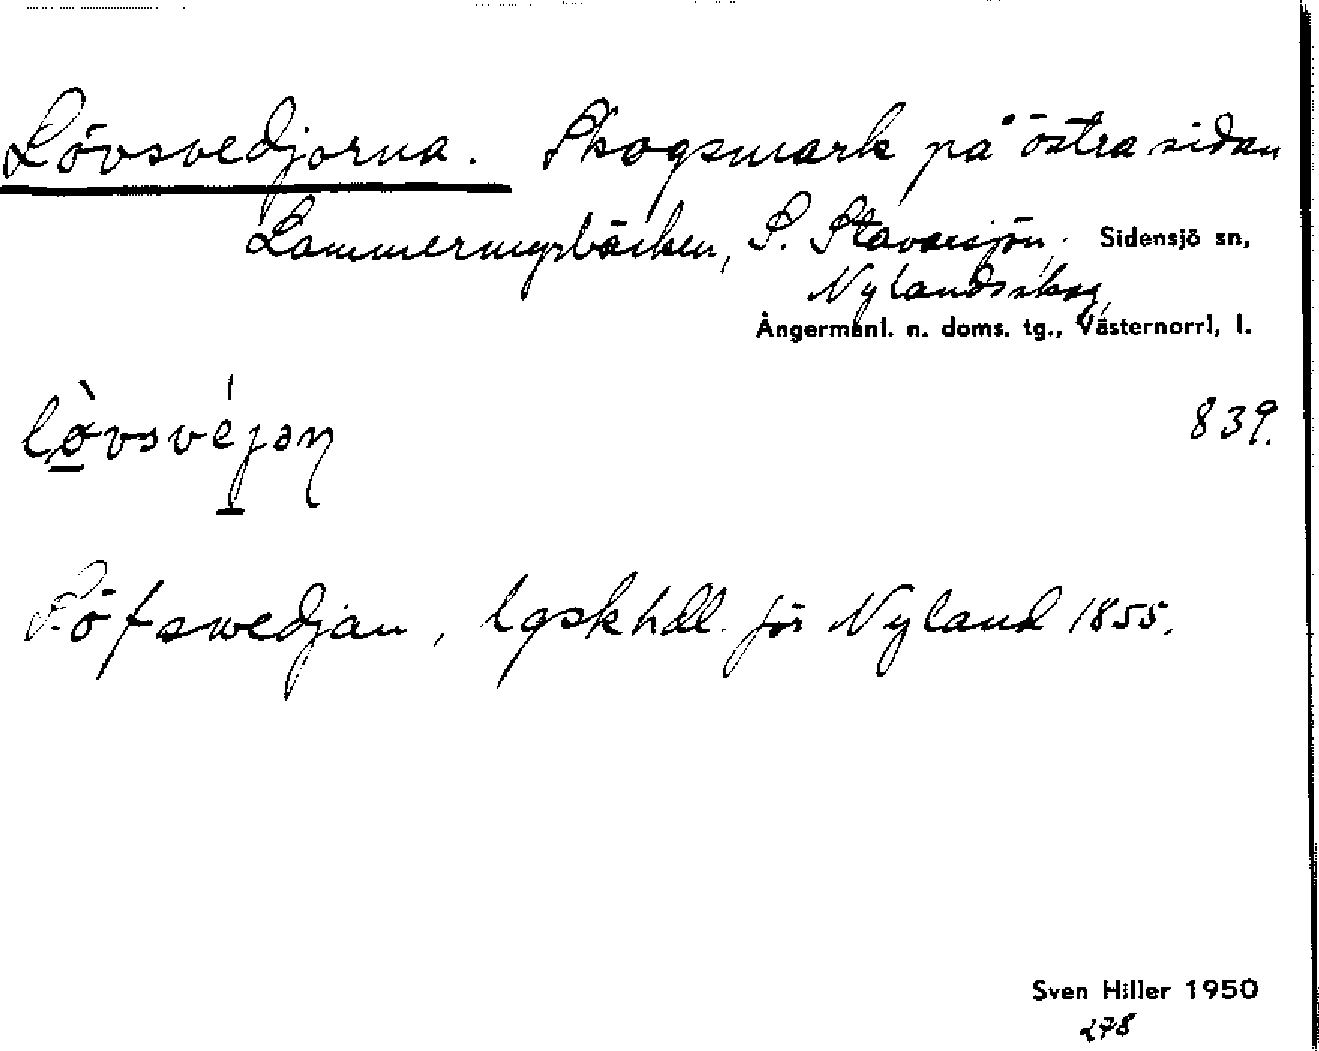 Lövsvedjorna. Skogsmark på östra sidan
Lammermyrbäcken, S. Stavarsjön. Sidensjö sn,
Nylandsskog,
Ångermanl. n. doms. tg., Västernorrl, l.
839.
Löfswedjan, lgskhdl. för Nyland 1855.
Sven Hiller 1950
278